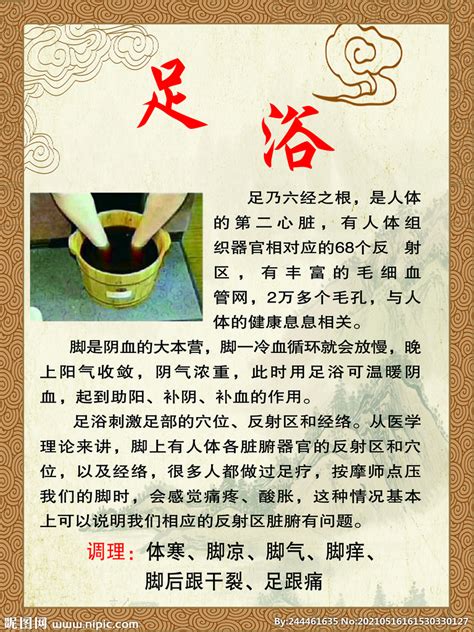 足
浴
足乃六经之根，是人体
的第二心脏，有人体组
织器官相对应的68个反 射
区，有丰富的毛细血
管网，2万多个毛孔，与人
体的健康息息相关。
脚是阴血的大本营，脚一冷血循环就会放慢，晚
上阳气收敛，阴气浓重，此时用足浴可温暖阴
血，起到助阳、补阴、补血的作用。
足浴刺激足部的穴位、反射区和经络。从医学
理论来讲，脚上有人体各脏腑器官的反射区和穴
位，以及经络，很多人都做过足疗，按摩师点压
我们的脚时，会感觉痛疼、酸胀，这种情况基本
上可以说明我们相应的反射区脏腑有问题。
调理：体寒、脚凉、脚气、脚痒、
脚后跟干裂、足跟痛
昵图网 www.nipic.com
By:244461635 No:20210516161530330127